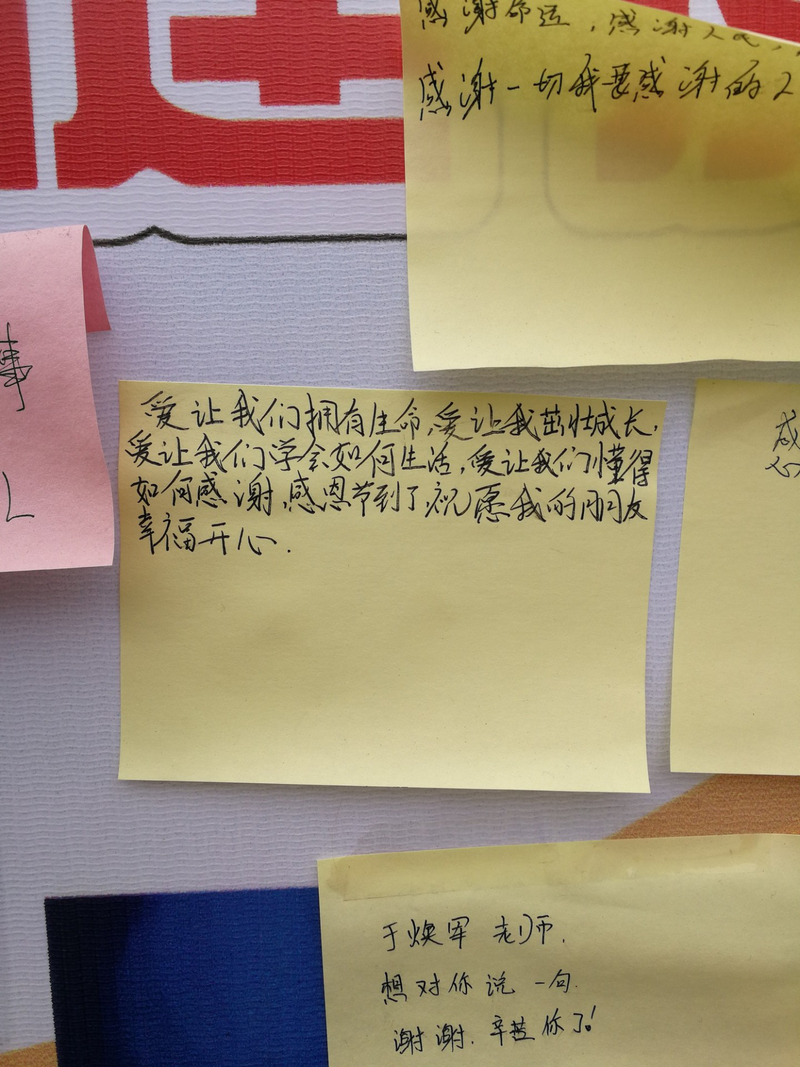 感谢命运，感谢人民，
感谢一切我要感谢的人
事
爱让我们拥有生命,爱让我茁壮成长.
爱让我们学会如何生活,爱让我们懂得
如何感谢,感恩节到了,祝愿我的朋友
幸福开心.
于焕军 老师.
想对你说一句.
谢谢.辛苦你了!